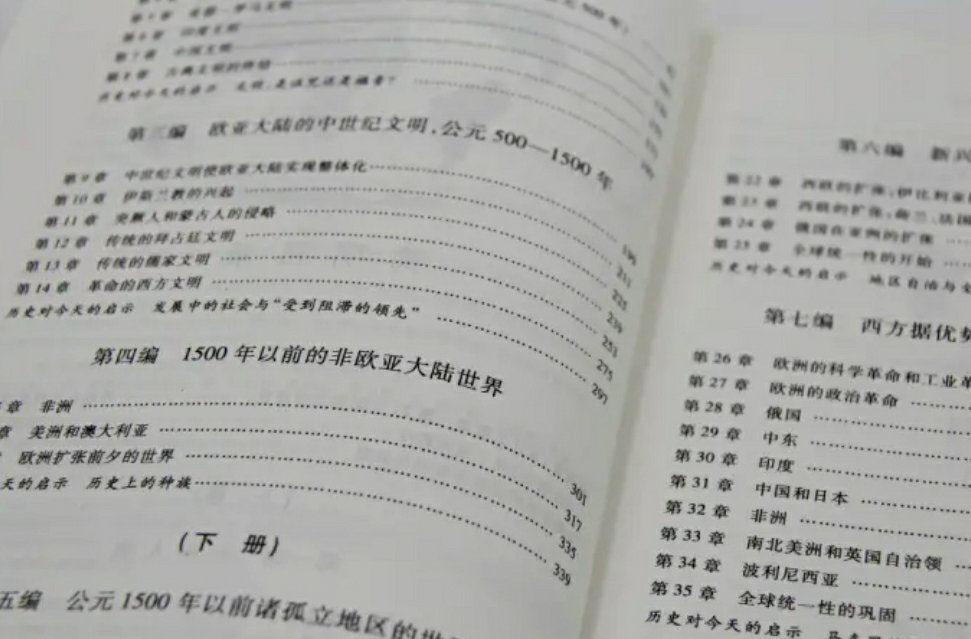 第 6 章 印度文明
第 7 章 中国文明
第 8 章 古典文明的终结
历史对今天的启示 文明：是诅咒还是福音？
第三编 欧亚大陆的中世纪文明，公元 500—1500 年
第 9 章 中世纪文明使欧亚大陆实现整体化 199
第 10 章 伊斯兰教的兴起 211
第 11 章 突厥人和蒙古人的侵略 225
第 12 章 传统的拜占廷文明 239
第 13 章 传统的儒家文明 253
第 14 章 革命的西方文明 275
历史对今天的启示 发展中的社会与“受到阻滞的领先” 297
第四编 1500 年以前的非欧亚大陆世界
章 非洲 301
章 美洲和澳大利亚 317
欧洲扩张前夕的世界 335
天的启示 历史上的种族 339
(下 册)
五编 公元 1500 年以前诸孤立地区的世
第六编 新兴
第 22 章 西欧的扩张：伊比利亚
第 23 章 西欧的扩张：荷兰、法国
第 24 章 俄国在亚洲的扩张
第 25 章 全球统一性的开始
历史对今天的启示 地区自治与
第七编 西方据优势
第 26 章 欧洲的科学革命和工业革
第 27 章 欧洲的政治革命
第 28 章 俄国
第 29 章 中东
第 30 章 印度
第 31 章 中国和日本
第 32 章 非洲
第 33 章 南北美洲和英国自治领
第 34 章 波利尼西亚
第 35 章 全球统一性的巩固
历史对今天的启示